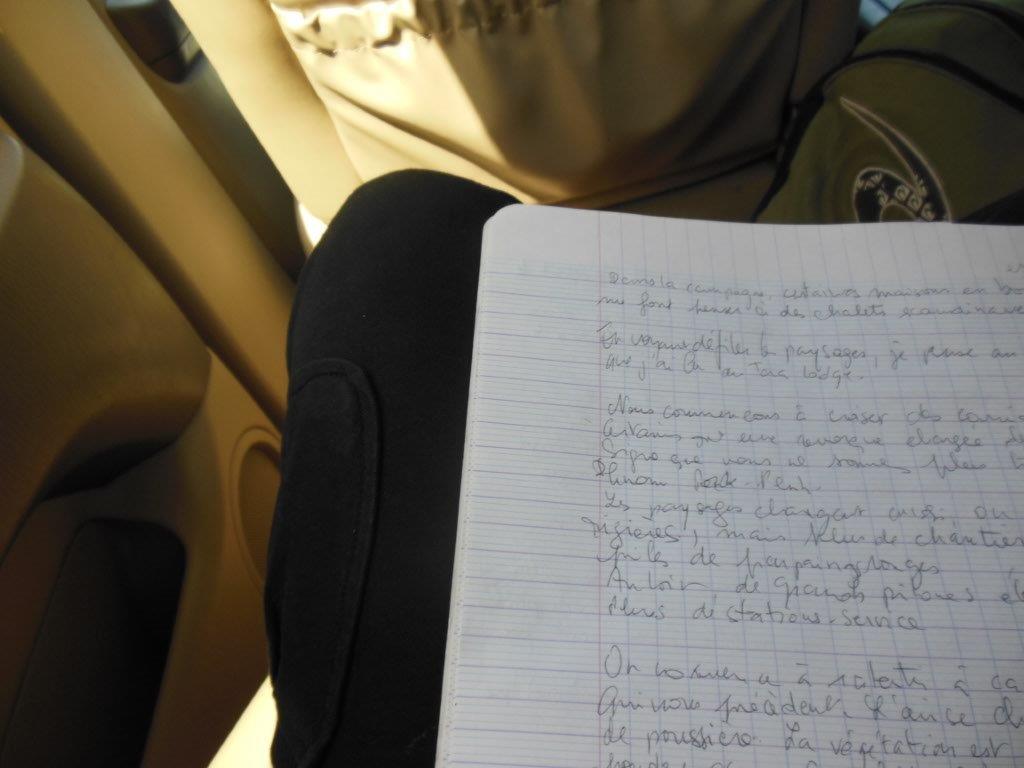 Dans la campagne, certaines maisons en bo
me font penser à des chalets scandinave
En voyant défiler le paysages, je pense au
que j'ai lu au Tara lodge.
Nous commencons à croiser des camio
certains qui une remorque chargée de
Signe que nous ne sommes plus
Phnom Penh.
Les paysages changent aussi. On
rizières, mais plus de chantier
piles de parpaings rouges
Au loin de grands pilones éle
Plus de stations-service
On commence à ralentir à ca
qui nous précèdent
de poussière. La végétation est